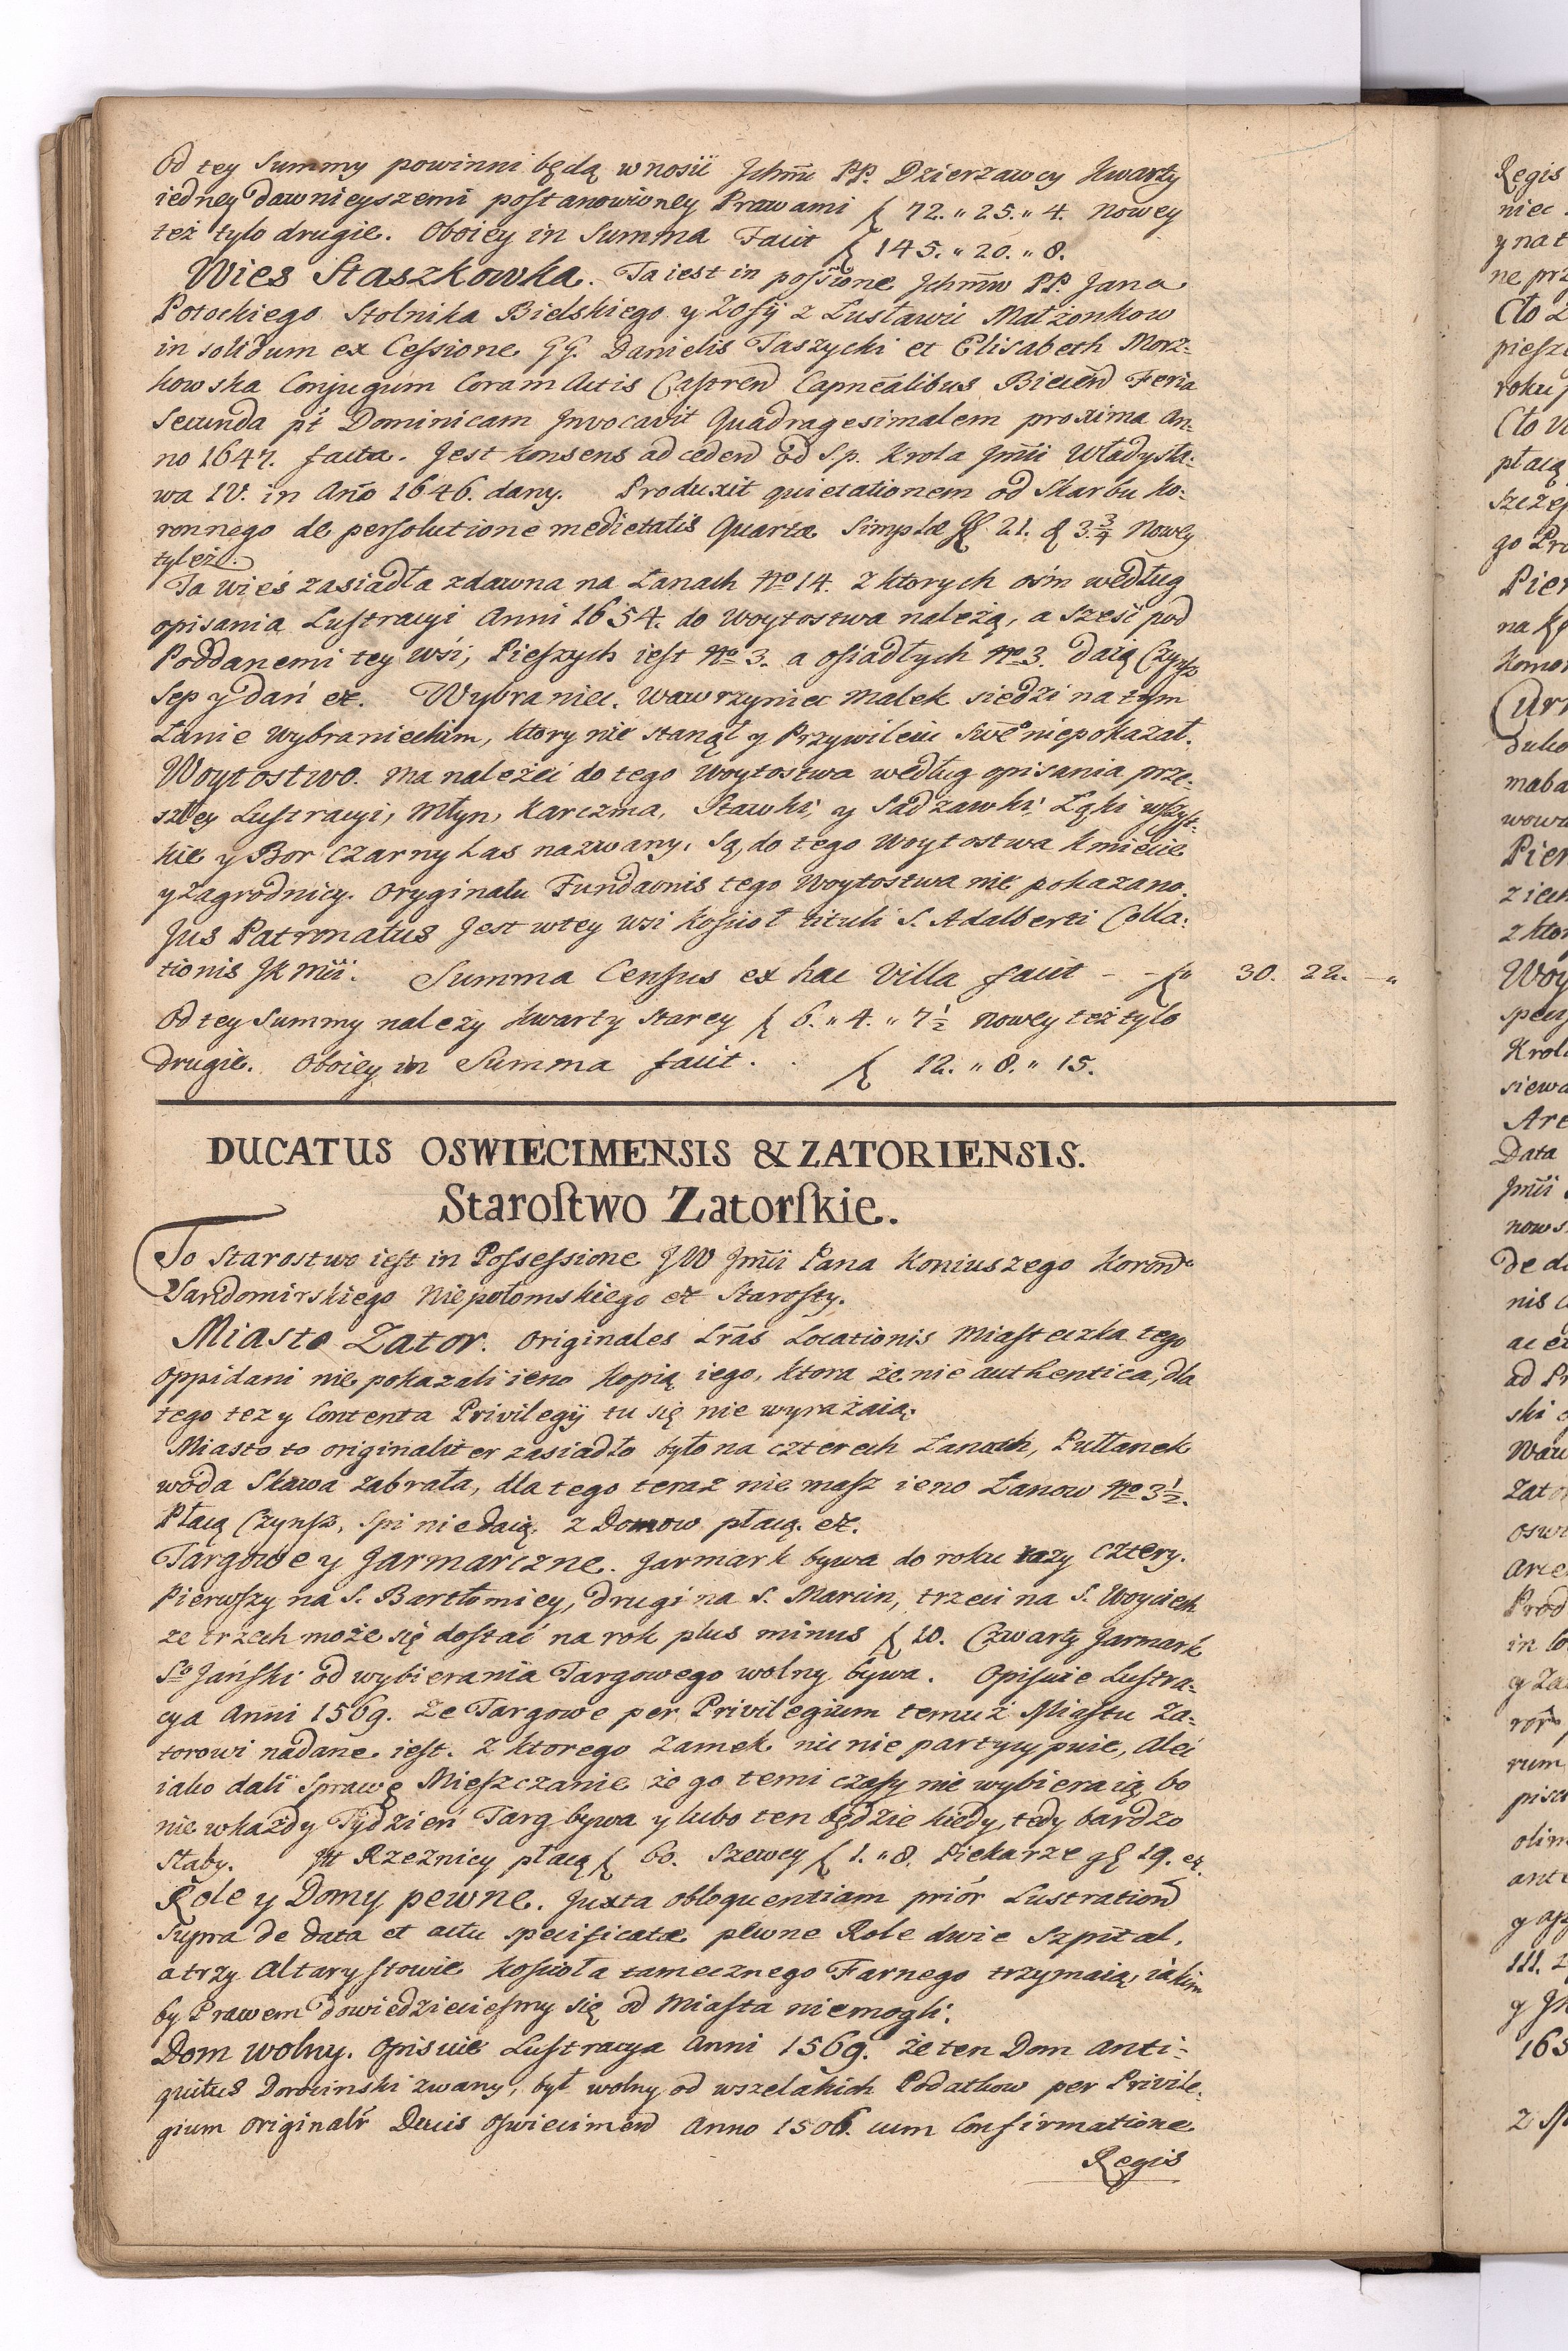 Od tey Summy powinni będą wnosić Jchmć PP. Dzierzawcy Kwarty
iedney dawnieyszemi postanowioney Prawami f 72. " 25. " 4. Nowey
też tylo drugie. Oboiey in Summa Facit f 145. " 20. " 8.
Wies Staszkowka. Ta iest in possione Jchmw PP. Jana
Potockiego Stolnika Bielskiego y Zofij z Lusławic Małzonkow
in solidum ex Cessione GG. Danielis Taszycki et Elisabeth Morz-
kowska Conjugum Coram Actis Castren Capnealibus Biecen Feria
Secunda pt Dominicam Invocavit Quadragesimalem proxima An-
no 1647. facta. Jest Konsens ad ceden od S.p. Krola Jmci Władysła-
wa IV. in Ano 1646. dany. Produxit quietationem od Skarbu Ko-
ronnego de persolutione medietatis Quartæ Simplæ 21. 3 3/4 Nowey
tyleż.
Ta wieś zasiadła zdawna na Łanach No 14. z ktorych ośm według
opisania Lustracyi Anni 1654. do Woytostwa należą, a sześć pod
Poddanemi tey wsi, Pieszych iest No 3. a osiadłych No 3. daią Czynsz
Sep y dań et. Wybraniec. Wawrzyniec Małek siedzi na tym
Łanie Wybranieckim, ktory nie stanął y Przywileiu Swe niepokazał.
Woytostwo. Ma należeć do tego Woytostwa według opisania prze-
szłey Lustracyi, Młyn, Karczma, Stawki, y Sadzawki, Łąki wszyt-
kie y Bor Czarny Las nazwany. Są do tego Woytostwa Kmiecie
y Zagrodnicy. Oryginału Fundaonis tego Woytostwa nie pokazano.
Jus Patronatus Jest wtey wsi Kościoł tituli S. Adalberti Colla-
tionis JKMci. Summa Census ex hac Villa facit - - f 30. 22. "
Od tey Summy należy Kwarty Starey f 6. " 4. " 7 1/2 Nowey też tylo
drugie. Oboiey in Summa facit . . f 12. " 8. " 15.
DUCATUS OSWIECIMENSIS & ZATORIENSIS.
Starostwo Zatorskie.
To Starostwo iest in Possessione JW Jmci Pana Koniuszego Koron
Sandomirskiego Niepołomskiego et Starosty.
Miasto Zator. Originales Lras Locationis Miasteczka tego
Oppidani nie pokazali ieno Kopią iego, ktora że nie authentica, dla
tego tez y Contenta Privilegij tu się nie wyrażaią.
Miasto to originaliter zasiadło było na czterech Łanach, Pułłanek
woda Skawa zabrała, dla tego teraz nie masz ieno Łanow No 3 1/2.
Płacą Czynsz, Spi nie daią, z Domow płacą. et.
Targowe y Jarmarczne. Jarmark bywa do roku razy cztery.
Pierwszy na S. Bartłomiey, drugi na S. Marcin, trzeci na S. Woyciech
ze trzech może się dostać na rok plus minus f 20. Czwarty Jarmark
S° Jański od wybierania Targowego wolny bywa. Opisuie Lustra-
cya Anni 1569. Że Targowe per Privilegium temuż Miastu Za-
torowi nadane iest. z ktorego Zamek nic nie partycypuie, Aleć
iako dali Sprawę Mieszczanie że go temi czasy nie wybieraią, bo
nie wkażdy Tydzień Targ bywa y lubo ten będzie kiedy, tedy bardzo
słaby. Rzeznicy płacą f 60. Szewcy f 1. " 8. Piekarze g 19. et.
Role y Domy pewne. Juxta obloquentiam prior Lustration
Supra de data et actu specificatæ pewne Role dwie Szpital,
a trzy Altarystowie Kościoła tamecznego Farnego trzymaią, iakim
by Prawem dowiedziećiesmy się od Miasta niemogli.
Dom wolny. Opisuie Lustracya Anni 1569. że ten Dom anti-
quitus Dorocinski zwany, był wolny od wszelakich Podatkow per Privile-
gium originalr Ducis Oswiecimen Anno 1506. cum Confirmatione
Regis